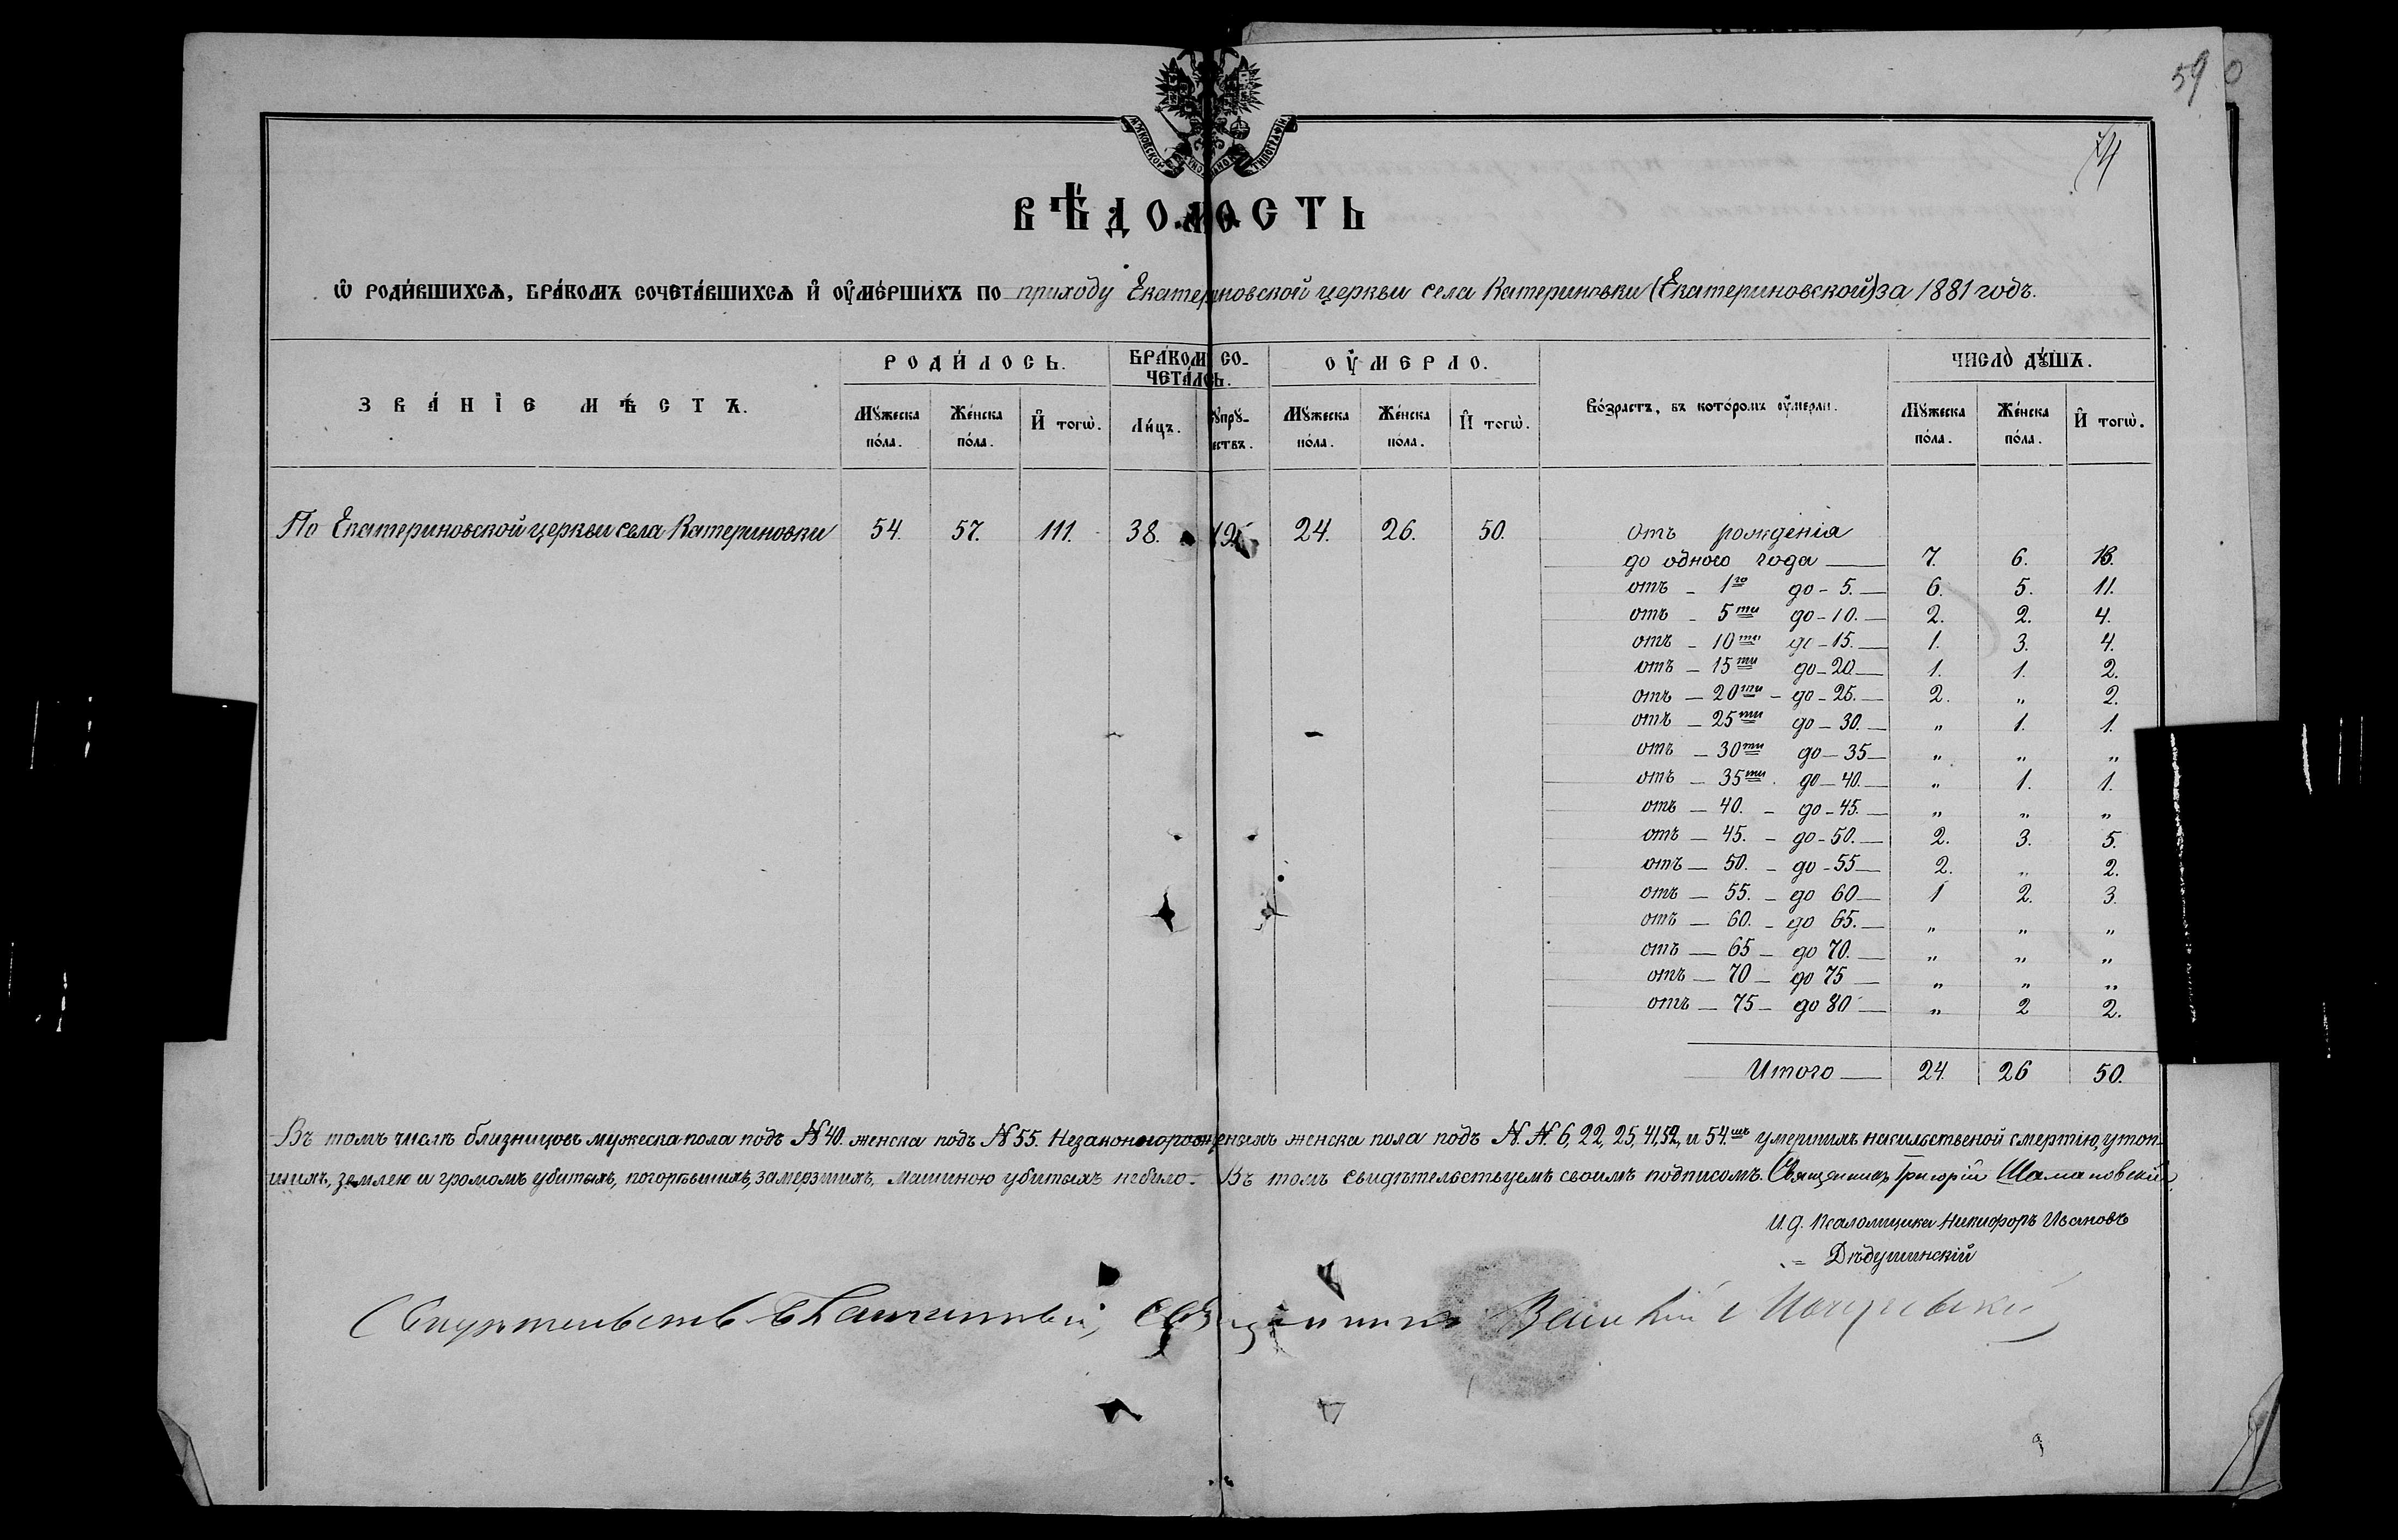 59
МОСКОВСКОЙ СѴНОДАЛЬНОЙ ТИПОГРАФІИ
ВѢДОМОСТЬ
Ѡ РОДИ́ВШИХСѦ, БРА́КОМЪ СОЧЕТА́ВШИХСѦ И҆ ОУ҆МЕ́РШИХЪ ПО приходу Екатериновской церкви села Катериновки (Екатериновской) за 1881 годъ.
ЗВА́НІЕ МѢ́СТЪ.
РОДИ́ЛОСЬ.
БРА́КОМЪ СО-
ЧЕТА́ЛОСЬ.
ОУ҆МЕРЛО.
Во́зрастъ, въ кото́ромъ оу҆мерли.
ЧИСЛО̀ ДꙊ́ШЪ.
Мꙋ́жеска по́ла. Же́нска по́ла. И҆ тогѡ̀. Ли́цъ. Сꙋпрꙋ́-жествъ. Мꙋ́жеска по́ла. Же́нска по́ла. И҆ тогѡ̀. Мꙋ́жеска по́ла. Же́нска по́ла. И҆ тогѡ̀.
По Екатериновской церкви села Катериновки 54. 57. 111. 38. 19. 24. 26. 50.
отъ рожденія
до одного года — 7. 6. 13.
отъ - 1го до - 5. — 6. 5. 11.
отъ - 5ти до - 10. — 2. 2. 4.
отъ - 10ти до - 15. — 1. 3. 4.
отъ - 15ти до - 20 — 1. 1. 2.
отъ - 20ти - до - 25. — 2. „ 2.
отъ - 25ти до - 30. — „ 1. 1.
отъ - 30ти до - 35 — „ „ „
отъ - 35ти до - 40. — „ 1. 1.
отъ - 40. - до - 45. — „ „ „
отъ - 45. - до - 50. — 2. 3. 5.
отъ - 50. - до - 55 — 2. „ 2.
отъ - 55. - до 60 — 1 2. 3.
отъ - 60. - до 65. — „ „ „
отъ - 65 - до 70. — „ „ „
отъ - 70 - до 75 — „ „ „
отъ - 75 - до 80 — „ 2 2.
Итого — 24. 26 50.
Въ томъ числѣ близницовъ мужеска пола подъ № 40. женска подъ № 55. Незаконнорожденыхъ женска пола подъ №.№ 6, 22, 25, 41, 52, и 54.мъ умершихъ насильственой смертію, утоп-
шихъ, землею и громомъ убитыхъ, погорѣвшихъ, замерзшихъ, машиною убитыхъ небыло. Въ томъ свидѣтельствуемъ своимъ подписомъ. Священникъ Григорій Шамановскій.
И. д. Псаломщика Никифоръ Ивановъ
„ = Дѣдушинскій